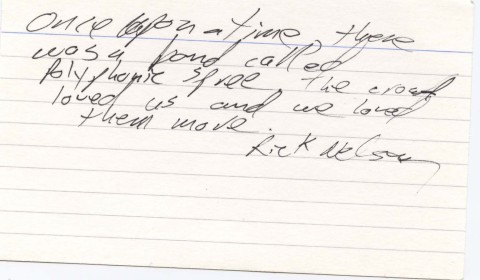 Once upon a time, there
was a band called
Polyphonic Spree the crowd
loved us and we loved
them more.
Rick Nelson